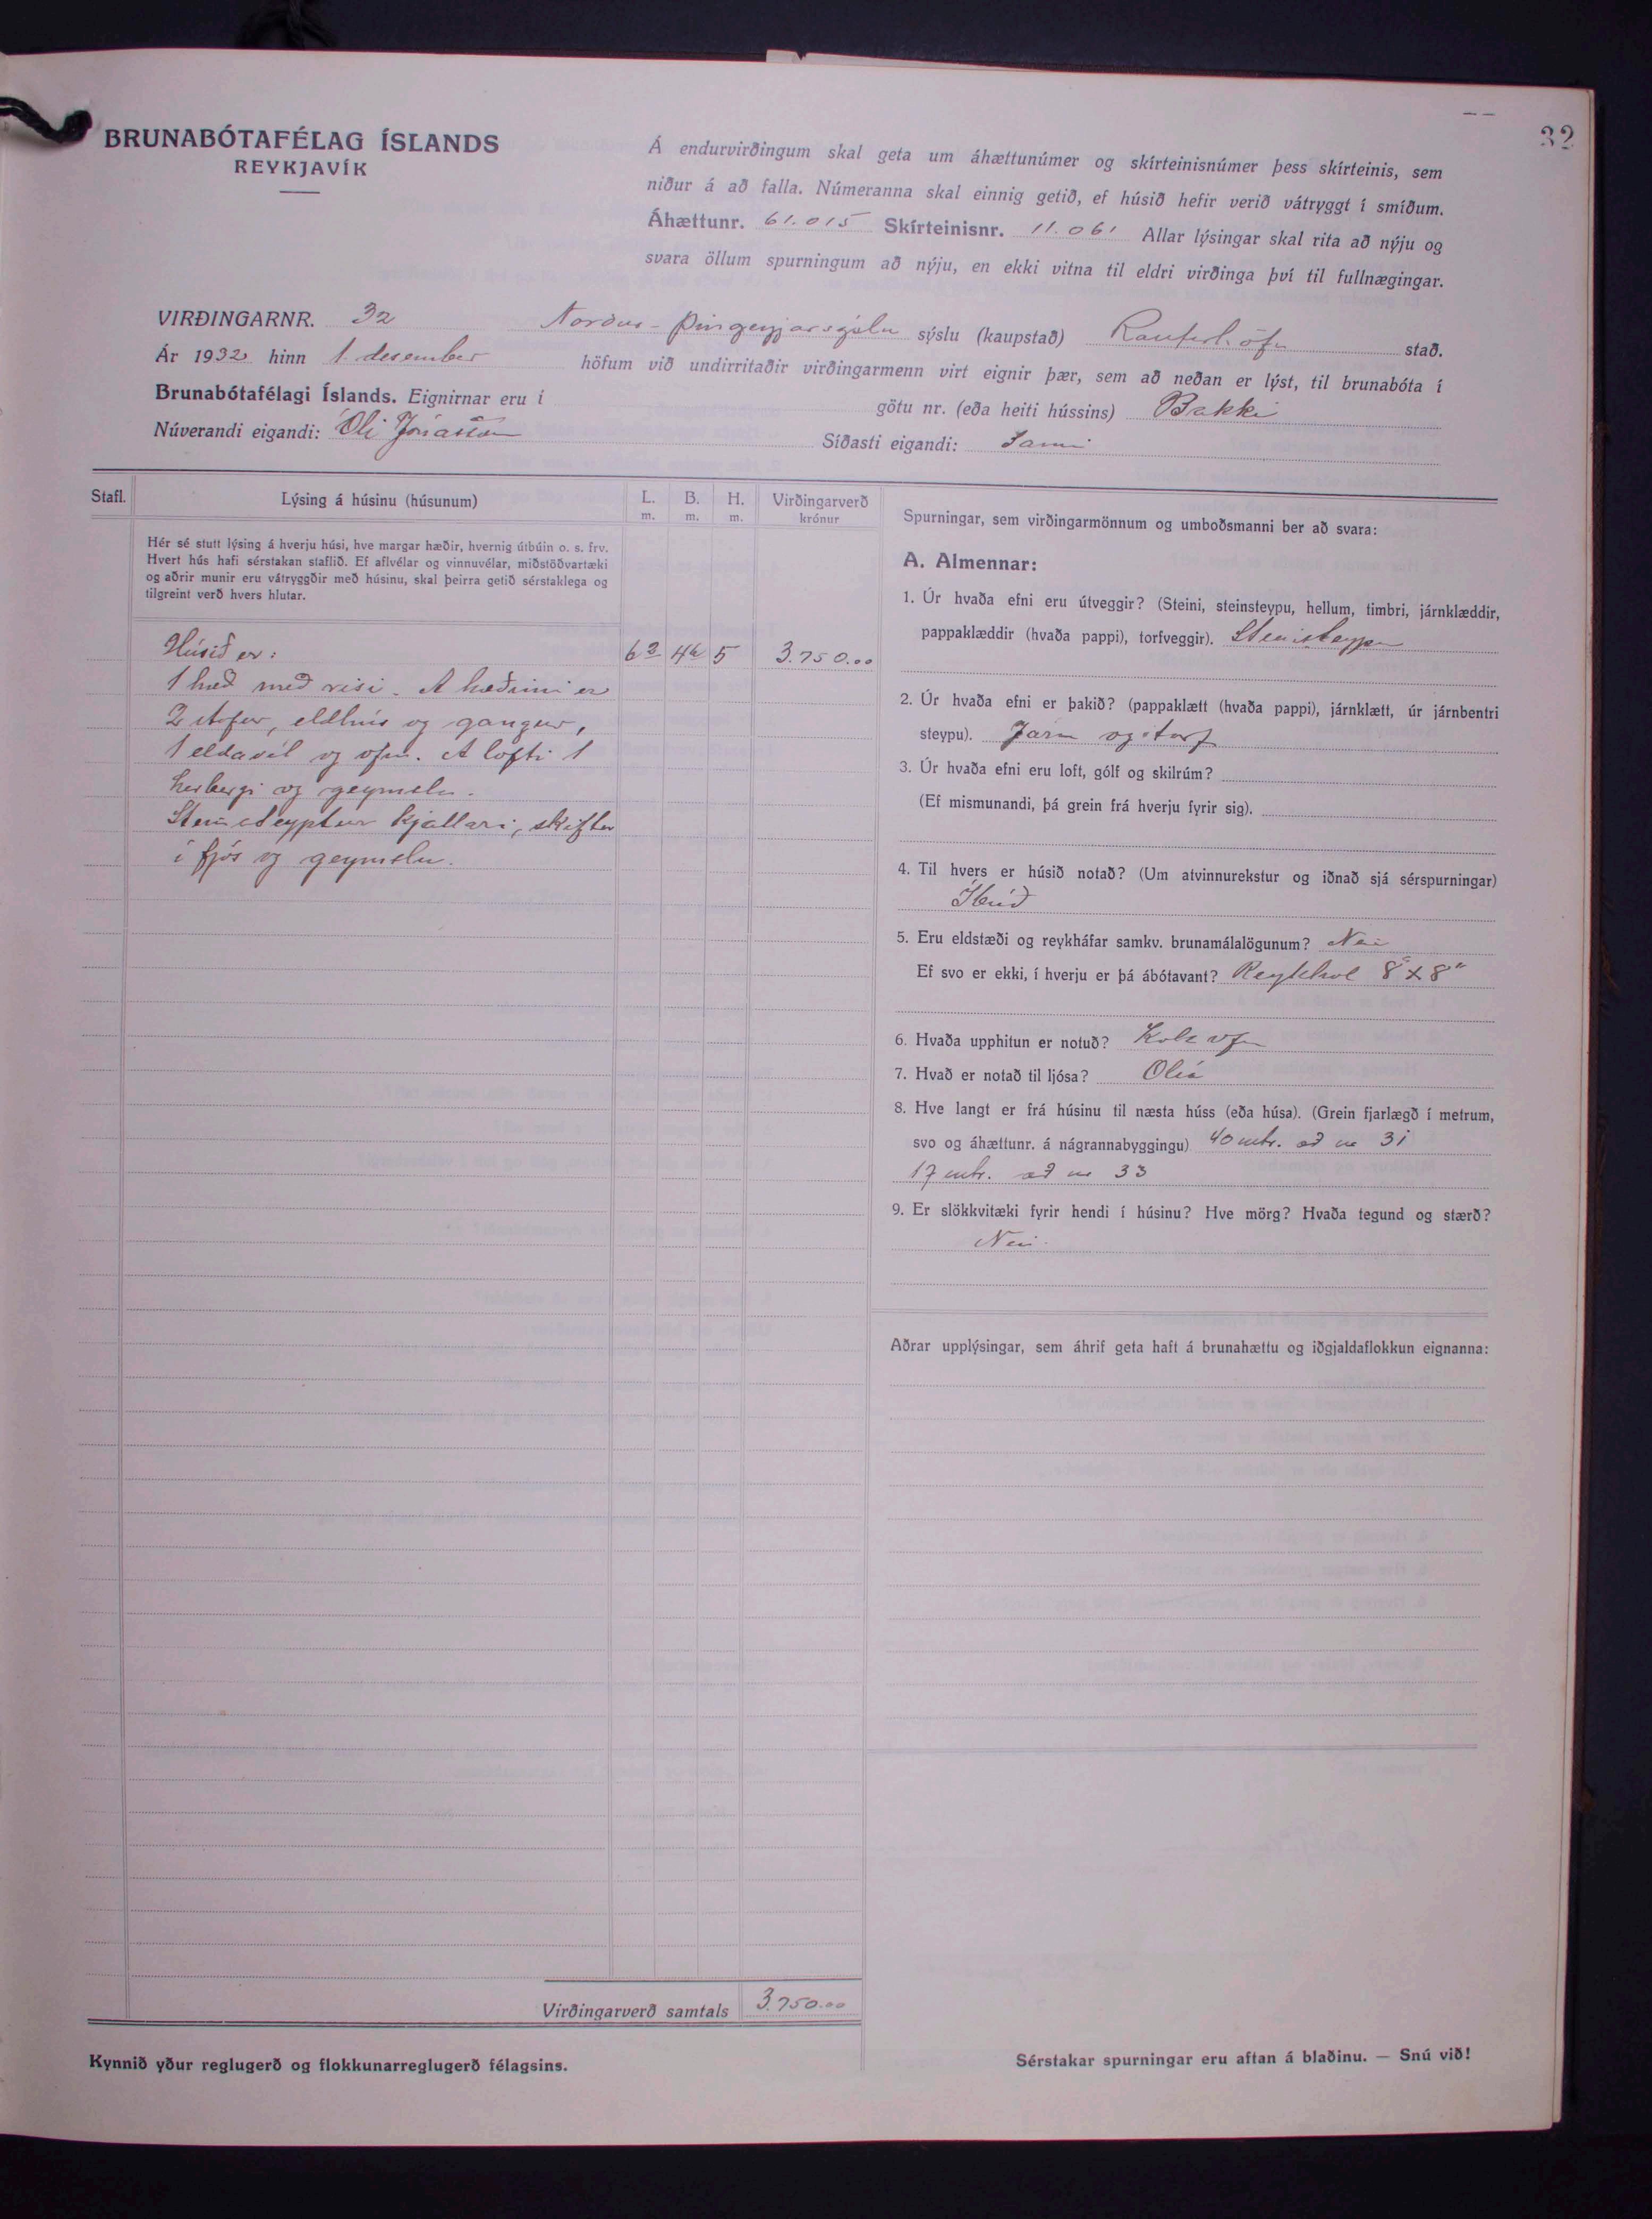 32
BRUNABÓTAFÉLAG ÍSLANDS
REYKJAVÍK
Á endurvirðingum skal geta um áhættunúmer og skírteinisnúmer þess skírteinis, sem
niður á að falla. Númeranna skal einnig getið, ef húsið hefir verið vátryggt í smíðum.
Áhættunr. 61.015 Skírteinisnr. 11.061 Allar lýsingar skal rita að nýju og
svara öllum spurningum að nýju, en ekki vitna til eldri virðinga því til fullnægingar.
VIRÐINGARNR. 32 Norður-Þingeyjarsýslu sýslu (kaupstað) Raufarhöfn stað.
Ár 1932 hinn 1. desember höfum við undirritaðir virðingarmenn virt eignir þær, sem að neðan er lýst, til brunabóta í
Brunabótafélagi Íslands. Eignirnar eru í götu nr. (eða heiti hússins) Bakki
Núverandi eigandi: Óli Jónasson Síðasti eigandi: Sami
Stafl. Lýsing á húsinu (húsunum) L. m. B. m. H. m. Virðingarverð krónur
Hér sé stutt lýsing á hverju húsi, hve margar hæðir, hvernig útbúin o. s. frv.
Hvert hús hafi sérstakan staflið. Ef aflvélar og vinnuvélar, miðstöðvartæki
og aðrir munir eru vátryggðir með húsinu, skal þeirra getið sérstaklega og
tilgreint verð hvers hlutar.
Húsið er: 6 3 4 6 5 3.750.00
1 hæð með risi. Á hæðinni er
2 stofur, eldhús og gangur,
1 eldavél og ofn. Á lofti 1
herbergi og geymsla.
Steinsteyptur kjallari, skiftur
í fjós og geymslu.
Virðingarverð samtals 3.750.00
Kynnið yður reglugerð og flokkunarreglugerð félagsins.
Spurningar, sem virðingarmönnum og umboðsmanni ber að svara:
A. Almennar:
1. Úr hvaða efni eru útveggir? (Steini, steinsteypu, hellum, timbri, járnklæddir,
pappaklæddir (hvaða pappi), torfveggir). Steinsteypu
2. Úr hvaða efni er þakið? (pappaklætt (hvaða pappi), járnklætt, úr járnbentri
steypu). Járn og torf
3. Úr hvaða efni eru loft, gólf og skilrúm?
(Ef mismunandi, þá grein frá hverju fyrir sig).
4. Til hvers er húsið notað? (Um atvinnurekstur og iðnað sjá sérspurningar)
Íbúð
5. Eru eldstæði og reykháfar samkv. brunamálalögunum? Nei
Ef svo er ekki, í hverju er þá ábótavant? Reykhol 8"x8"
6. Hvaða upphitun er notuð? Kola ofn
7. Hvað er notað til ljósa? Olía
8. Hve langt er frá húsinu til næsta húss (eða húsa). (Grein fjarlægð í metrum,
svo og áhættunr. á nágrannabyggingu) 40 mtr. að nr 31
17 mtr. að nr 33
9. Er slökkvitæki fyrir hendi í húsinu? Hve mörg? Hvaða tegund og stærð?
Nei.
Aðrar upplýsingar, sem áhrif geta haft á brunahættu og iðgjaldaflokkun eignanna:
Sérstakar spurningar eru aftan á blaðinu. — Snú við!